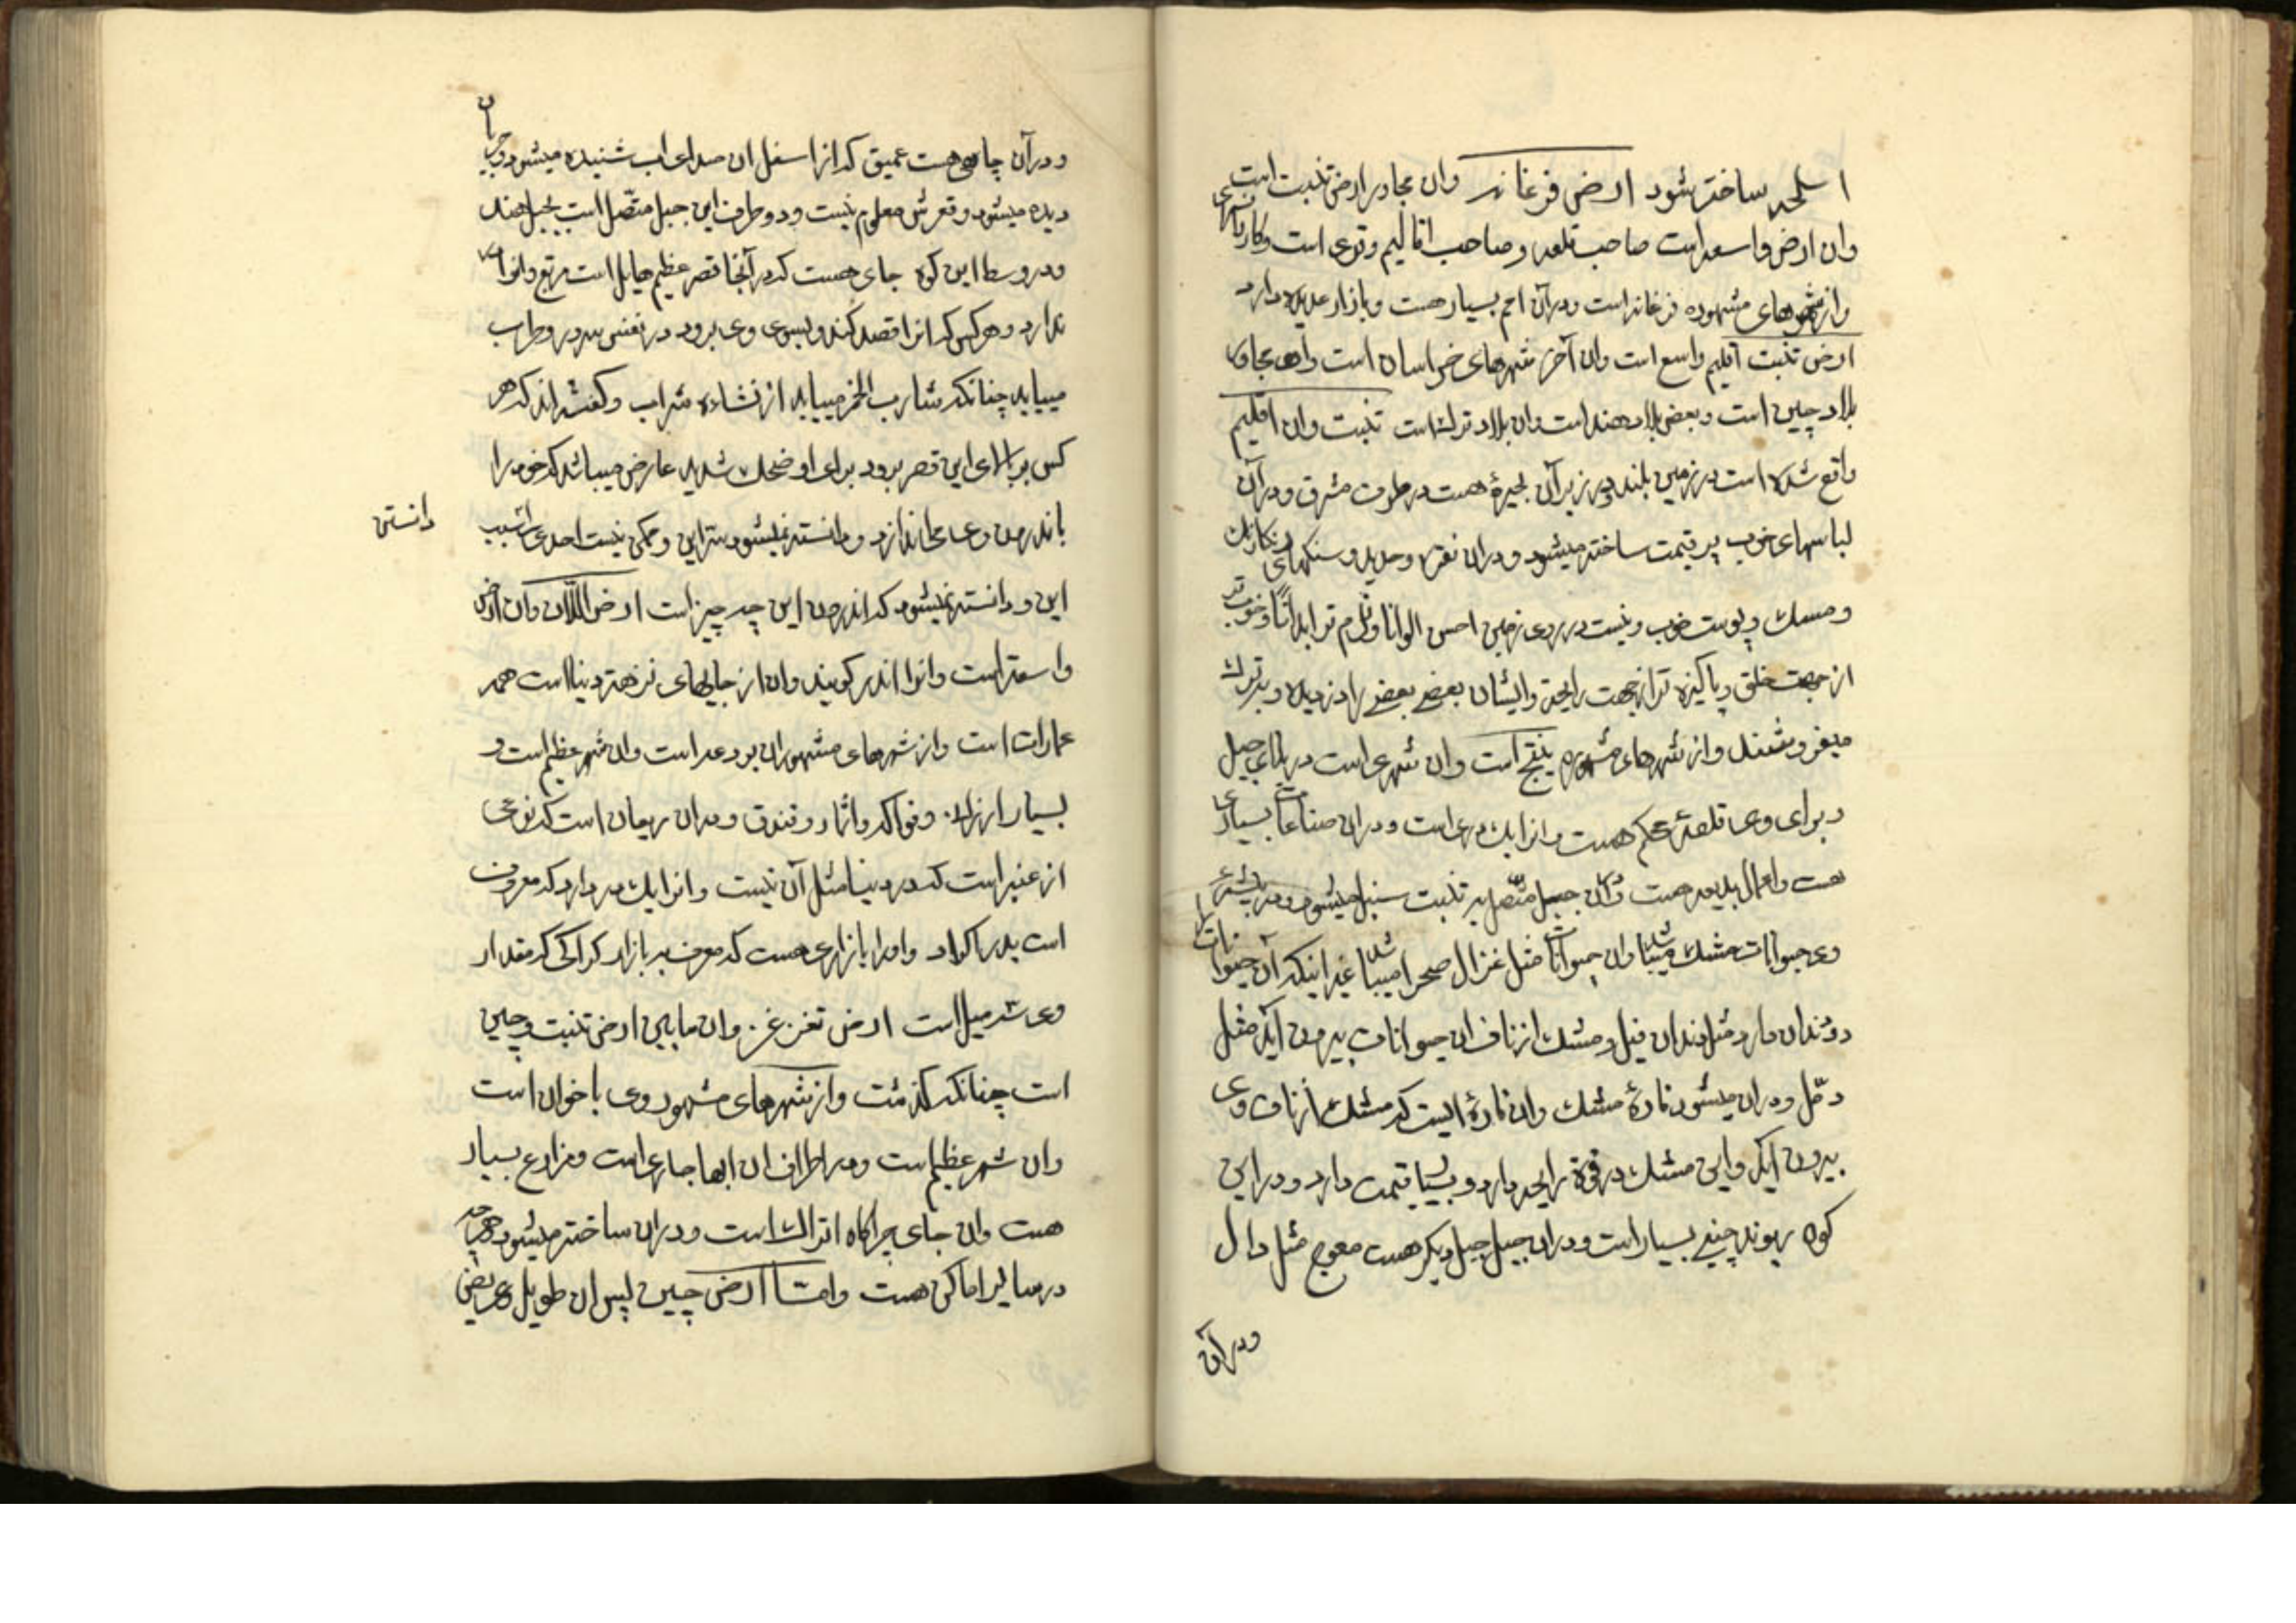 اسلحه ساخته شود ارض فرغانه وان مجاور ارض تنبت است
وان ارض واسعه است صاحب قلعه و صاحب اقالیم وقری است وکارها
واز شهرهای مشهوده فرغانه است ودرآن امم بسیار هست وبازار عدیده دارد
ارض تنبت اقلیم واسع است وان آخر شهرهای خراسان است واهد مجاور
بلاد چین است وبعض بلاد هند است وان بلاد ترك است تنبت وان اقلیم
واقع شده است در زمین بلند ودر زیر آن بحیرهٔ هست در طرف مشرق ودرآن
لباسهای خوب پر قیمت ساخته میشود ودران نقره وحدید وسنکهای
ومسك وپوست خوب ونیست در روی زمین احسن الوانا و ترابدانا وخوب تر
از جهت خلق وپاکیزه تر از جهت رایحه وایشان بعضی بعضی را دزدیده وبه ترك
میفروشند واز شهرهای مشهوره ینتج است وان شهری است در بالای جبل
وبرای وی قلعهٔ محکم هست وانرا یك دری است ودران صناعات بسیاری
هست واعمال بدیعه هست وآن جبل متصل به تنبت سنبل میشود ودر بیشهٔ
وی حیوانات مشك میباشد وان حیوانات مثل غزال صحرا میباشد غیر اینکه آن حیوانات
دو دندان دارد مثل دندان فیل ومشك از ناف ان حیوانات بیرون آید مثل
دمّل ودران میشود نارهٔ مشك وان نارهٔ ایست که مشك از ناف وی
بیرون آید واین مشك در قوة رایحه دارد وبسیا قیمت دارد ودر این
کوه ریوند چینی بسیار است ودران جبل جبل دیکر هست معوج مثل دال
ودر آن
ودر آن چاهی هست عمیق که از اسفل ان صدای اب شنیده میشود وجریان
دیده میشود وقعرش معلوم نیست ودو طرف این جبل متّصل است بجبل هند
ودر وسط این کوه جای هست که در آنجا قصر عظیم هایل است مربع وانرا
ندارد وهر کس که انرا قصد کند وبسوی وی برود در نفس سرور وطرب
میباید چنانکه شارب الخمر میباید از نشاءه شراب وکفته اند که هر
کس بر بالای این قصر برود برای او ضحك شدید عارض میباشد که خود را
باندرون وی می اندازد ودانسته نمیشود سرّ این وممکن نیست احدی را سبب
دانستن
این ودانسته نمیشود که اندرون این چه چیز است ارض اللّان وان ارض
واسعة است وانرا اندر کویند وان از جایهای نزهة دنیا است همه
عمارات است واز شهرهای مشهور ان بودعه است وان شهر عظیم است و
بسیار ارزان وفواکه واثمار وفندق ودران ریعان است که نوعی
از عنبر است که در دنیا مثل آن نیست وانرا یك در دارد که معروف
است بدر اکواد واورا بازاری هست که معروف به بازار کراکی که مقدار
وی شه میل است ارض تغزغز وان مابین ارض تنبت وچین
است چنانکه کذشت واز شهرهای مشهور وی باخوان است
وان شهر عظیم است ودر اطراف ان ابها جاری است ومزارع بسیار
هست وان جای چراکاه اتراك است ودران ساخته میشود هرچه
در سایر اماکن هست وامّا ارض چین پس ان طویل وعریض